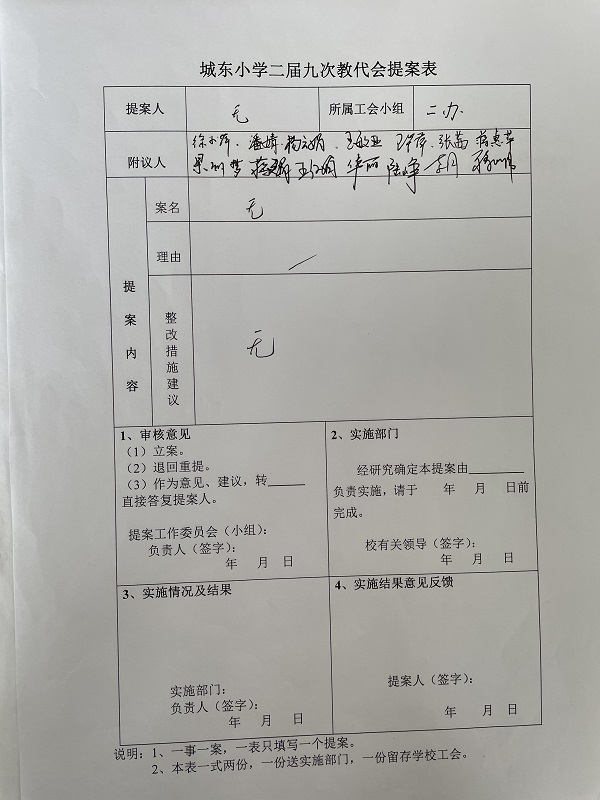 城东小学二届九次教代会提案表
提案人 无 所属工会小组 二办
附议人 潘婧 杨文娟 王敏亚 张茜
华丽
案名 无
理由 /
提案内容
整改措施建议 无
1、审核意见
（1）立案。
（2）退回重提。
（3）作为意见、建议，转______
直接答复提案人。
提案工作委员会（小组）：
负责人（签字）：
年 月 日
2、实施部门
经研究确定本提案由________
负责实施，请于 年 月 日前
完成。
校有关领导（签字）：
年 月 日
3、实施情况及结果
实施部门：
负责人（签字）：
年 月 日
4、实施结果意见反馈
提案人（签字）：
年 月 日
说明：1、一事一案，一表只填写一个提案。
2、本表一式两份，一份送实施部门，一份留存学校工会。